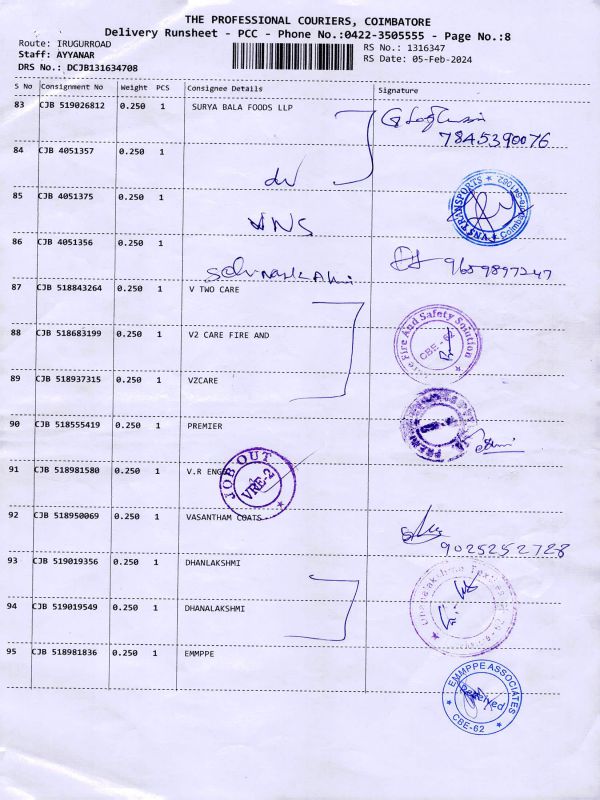 THE PROFESSIONAL COURIERS, COIMBATORE
Delivery Runsheet - PCC - Phone No.:0422-3505555 - Page No.:8
Route: IRUGURROAD
Staff: AYYANAR
DRS No.: DCJB131634708
RS No.: 1316347
RS Date: 05-Feb-2024
S No Consignment No Weight PCS Consignee Details Signature
83 CJB 519026812 0.250 1 SURYA BALA FOODS LLP
7845390076
84 CJB 4051357 0.250 1
85 CJB 4051375 0.250 1
VNS
VNS TRANSPORTS
86 CJB 4051356 0.250 1
9659897247
87 CJB 518843264 0.250 1 V TWO CARE
88 CJB 518683199 0.250 1 V2 CARE FIRE AND
Fire And Safety Solution
CBE - 62
89 CJB 518937315 0.250 1 VZCARE
90 CJB 518555419 0.250 1 PREMIER
91 CJB 518981580 0.250 1 V.R ENGG
JOB OUT
VRE-2
92 CJB 518950069 0.250 1 VASANTHAM COATS
9025252728
93 CJB 519019356 0.250 1 DHANLAKSHMI
94 CJB 519019549 0.250 1 DHANALAKSHMI
95 CJB 518981836 0.250 1 EMMPPE
EMMPPE ASSOCIATES
Received
CBE-62